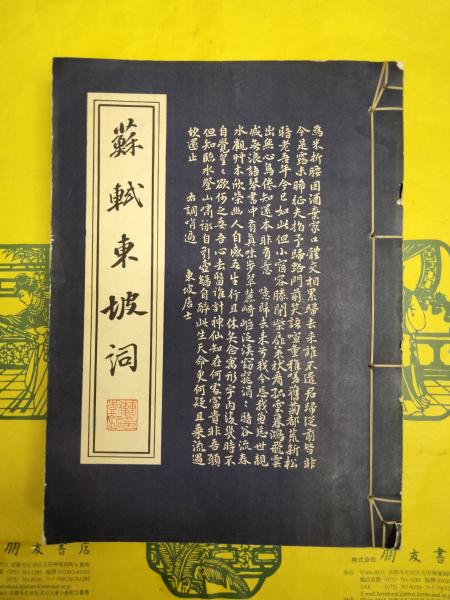 蘇軾東坡詞
為米折腰因酒棄家口體交相累歸去來誰不遣君歸從前皆非
今是露未晞征夫指予歸路門前笑語喧童稚嗟舊菊都荒新松
暗老吾年今已如此但小窗容膝閉柴扉策杖看孤雲暮鴻飛雲
出無心鳥倦知還本非有意 噫歸去來兮我今忘我兼忘世親
戚無浪語琴書中有真味步翠麓崎嶇泛溪窈窕涓〻暗谷流春
水觀艸木欣榮幽人自感吾生行且休矣念寓形宇內復幾時不
自覺皇〻欲何之委吾心去留誰計神仙知在何處富貴非吾願
但知臨水登山嘯詠自引壺觴自醉此生天命更何疑且乘流遇
坎還止 右調哨遍 東坡居士
朋友書店
株式会社 朋友書店